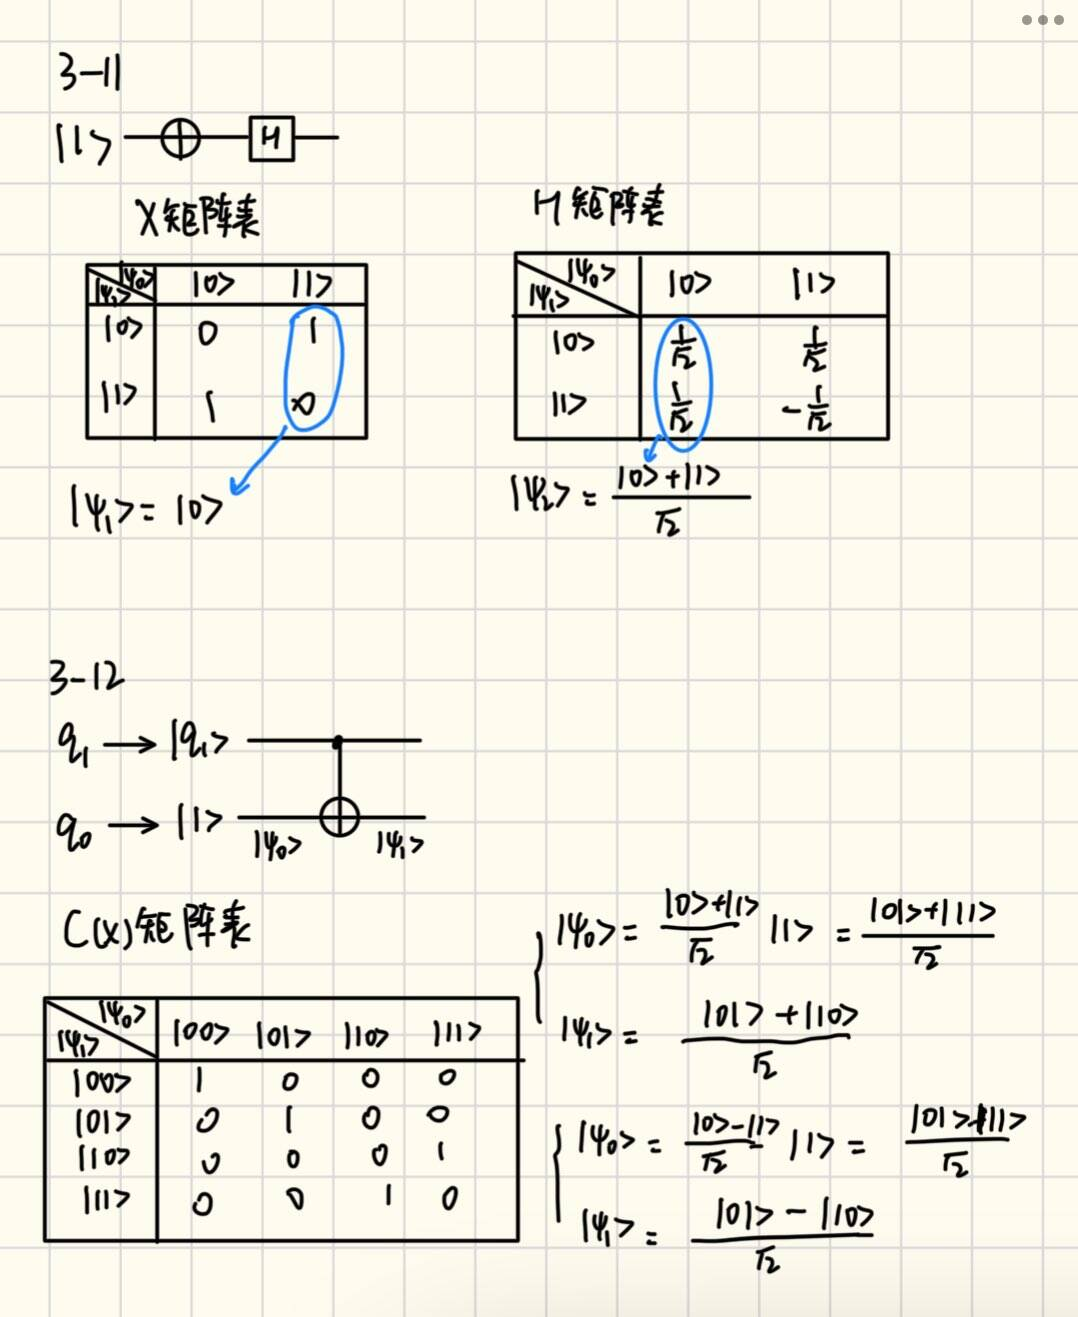 3-11
|1> H
X矩阵表
|ψ₀> |0> |1>
|ψ₁>
|0> 0 1
|1> 1 0
|ψ₁> = |0>
H矩阵表
|ψ₀> |0> |1>
|ψ₁>
|0> 1/√2 1/√2
|1> 1/√2 -1/√2
|ψ₂> = (|0>+|1>)/√2
3-12
q₁ → |q₁>
q₀ → |1>
|ψ₀> |ψ₁>
C(X)矩阵表
|ψ₀> |00> |01> |10> |11>
|ψ₁>
|00> 1 0 0 0
|01> 0 1 0 0
|10> 0 0 0 1
|11> 0 0 1 0
|ψ₀> = (|0>+|1>)/√2 |1> = (|01>+|11>)/√2
|ψ₁> = (|01>+|10>)/√2
|ψ₀> = (|0>-|1>)/√2 |1> = (|01>-|11>)/√2
|ψ₁> = (|01>-|10>)/√2